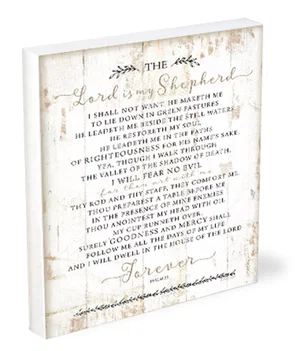 THE
Lord is my Shepherd
I SHALL NOT WANT HE MAKETH ME
TO LIE DOWN IN GREEN PASTURES
HE LEADETH ME BESIDE THE STILL WATERS
HE RESTORETH MY SOUL
HE LEADETH ME IN THE PATHS
OF RIGHTEOUSNESS FOR HIS NAME'S SAKE.
YEA, THOUGH I WALK THROUGH
THE VALLEY OF THE SHADOW OF DEATH,
I WILL FEAR NO EVIL
for thou art with me
THY ROD AND THY STAFF, THEY COMFORT ME.
THOU PREPAREST A TABLE BEFORE ME
IN THE PRESENCE OF MINE ENEMIES
THOU ANOINTEST MY HEAD WITH OIL
MY CUP RUNNETH OVER.
SURELY GOODNESS AND MERCY SHALL
FOLLOW ME ALL THE DAYS OF MY LIFE
AND I WILL DWELL IN THE HOUSE OF THE LORD
Forever
PSALM 23